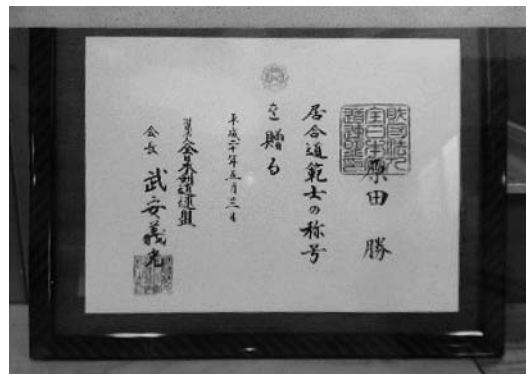 田 勝
居合道範士の称号
を贈る
平成二十年五月三日
財団法人 全日本剣道連盟
会長 武安義光